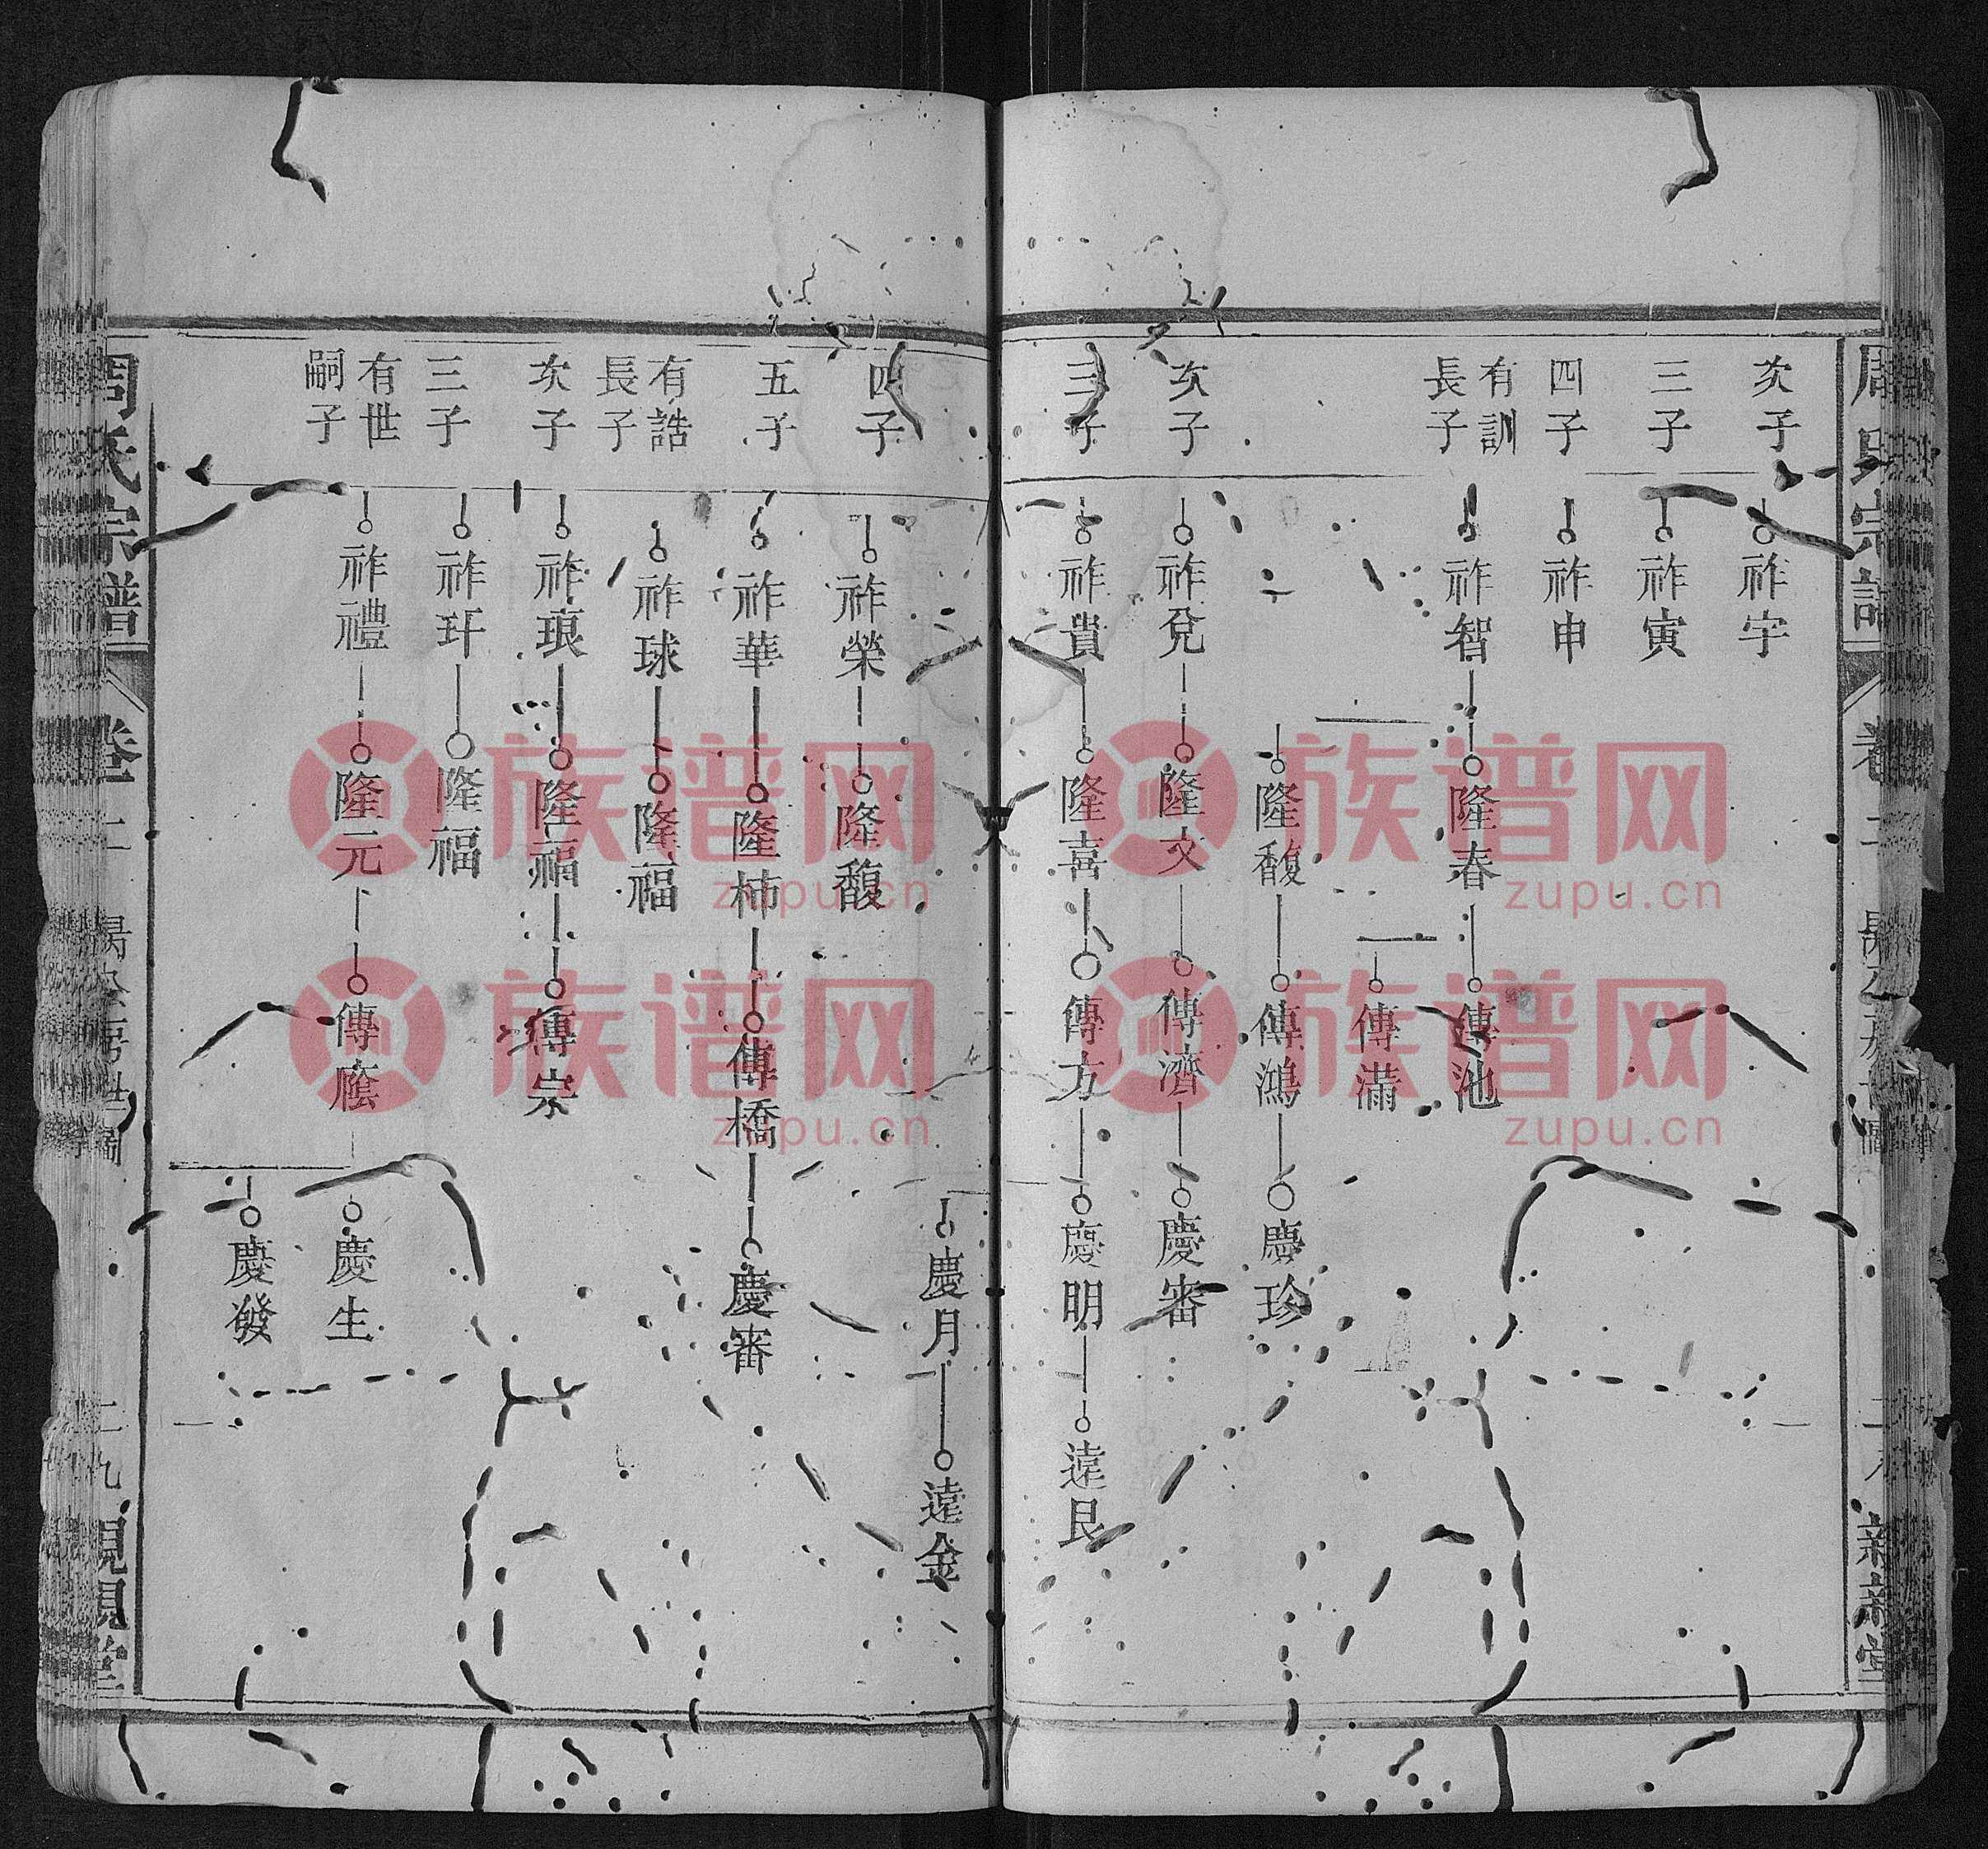 周氏宗譜
卷二
新新堂
次子
祚宇
三子
祚寅
四子
祚申
有訓
長子
祚智
隆春
傳池
傳滿
隆馥
傳鴻
慶珍
次子
祚兌
隆文
傳濟
慶審
三子
祚貴
隆喜
傳方
慶明
遠艮
慶月
遠金
四子
祚榮
隆馥
五子
祚華
隆柿
傳橋
慶審
有誥
長子
祚球
隆福
次子
祚琅
隆福
傳宗
三子
祚玕
隆福
有世
嗣子
祚禮
隆元
傳蔭
慶生
慶發
周氏宗譜
卷二
二九
族谱网
zupu.cn
族谱网
zupu.cn
族谱网
zupu.cn
族谱网
zupu.cn